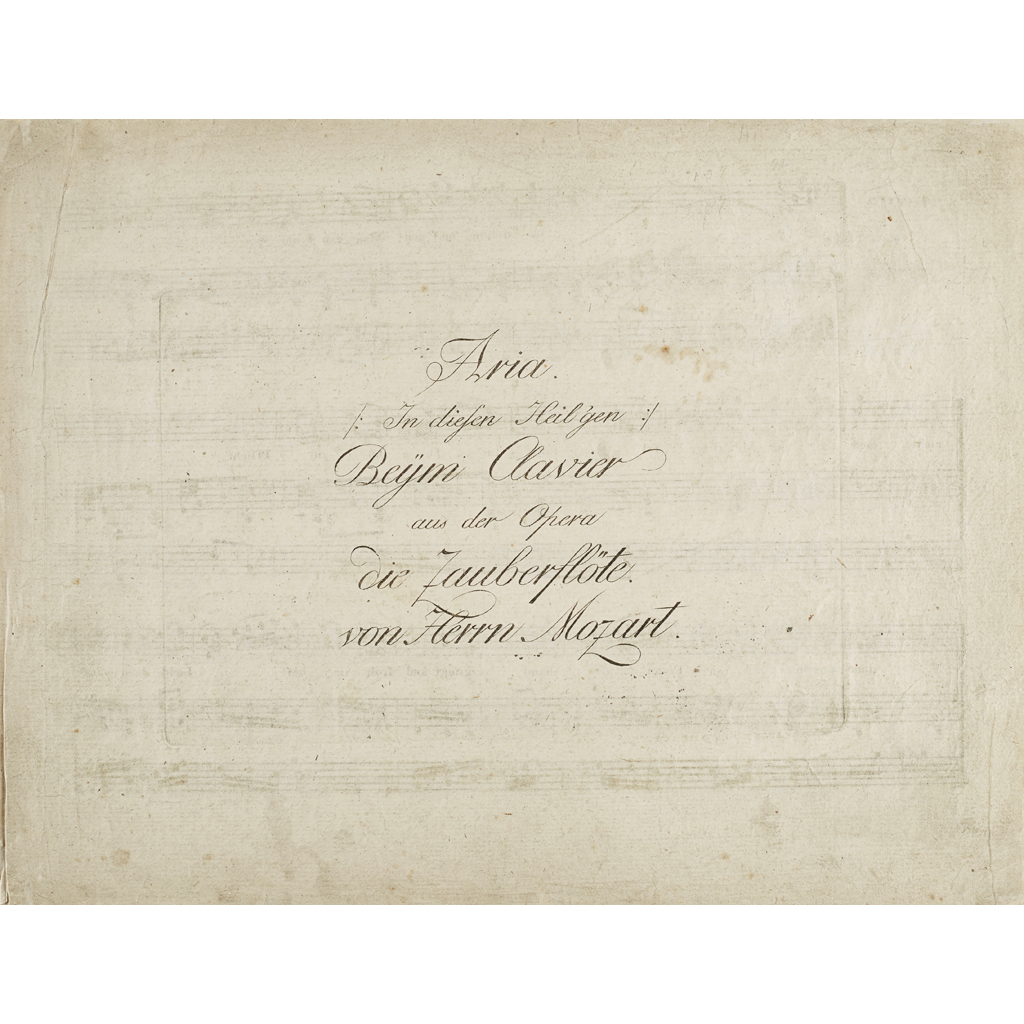 Aria.
/: In dieſen Heil'gen :/
Beÿm Clavier
aus der Opera
die Zauberflöte.
von Herrn Mozart.